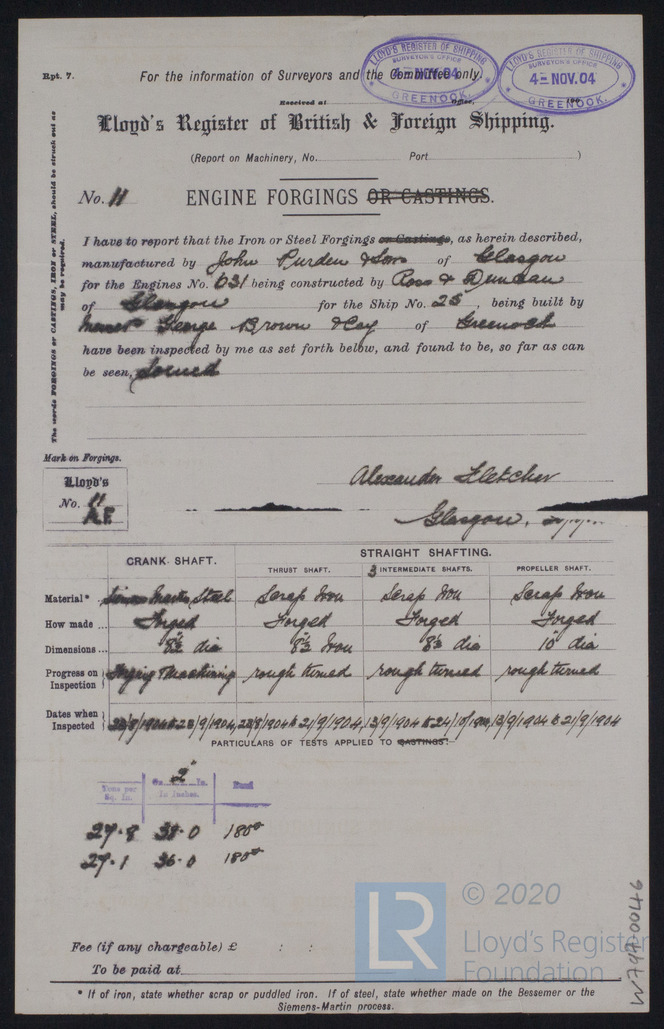 Rpt. 7.
For the information of Surveyors and the Committee only.
LLOYD'S REGISTER OF SHIPPING
SURVEYOR'S OFFICE
GREENOCK
LLOYD'S REGISTER OF SHIPPING
SURVEYOR'S OFFICE
4 - NOV. 04
GREENOCK.
Received at Office, 190
Lloyd's Register of British & Foreign Shipping.
(Report on Machinery, No. Port )
No. 11 ENGINE FORGINGS OR CASTINGS.
The words FORGINGS or CASTINGS, IRON or STEEL, should be struck out as may be required.
I have to report that the Iron or Steel Forgings or Castings, as herein described,
manufactured by John Purden & Son of Glasgow
for the Engines No. 631 being constructed by Ross & Duncan
of Glasgow for the Ship No. 25, being built by
Messrs George Brown & Coy of Greenock
have been inspected by me as set forth below, and found to be, so far as can
be seen, Sound
Mark on Forgings.
Lloyd's
No. 11
A.F.
Alexander Fletcher
Glasgow,
CRANK SHAFT. STRAIGHT SHAFTING.
THRUST SHAFT. 3 INTERMEDIATE SHAFTS. PROPELLER SHAFT.
Material* Siemens Martin Steel Scrap Iron Scrap Iron Scrap Iron
How made ... Forged Forged Forged Forged
Dimensions ... dia dia 10" dia
Progress on Inspection Forging Machining rough turned rough turned rough turned
Dates when Inspected 28/9/1904, 21/9/1904, 13/9/1904 to 24/10/1904, 13/9/1904 to 21/9/1904
PARTICULARS OF TESTS APPLIED TO CASTINGS.
Tons per Sq. In. 2" In Inches. Bend
27.8 38.0 180°
27.1 36.0 180°
Fee (if any chargeable) £ : :
To be paid at
* If of iron, state whether scrap or puddled iron. If of steel, state whether made on the Bessemer or the
Siemens-Martin process.
LR
© 2020
Lloyd's Register
Foundation
W794-0046